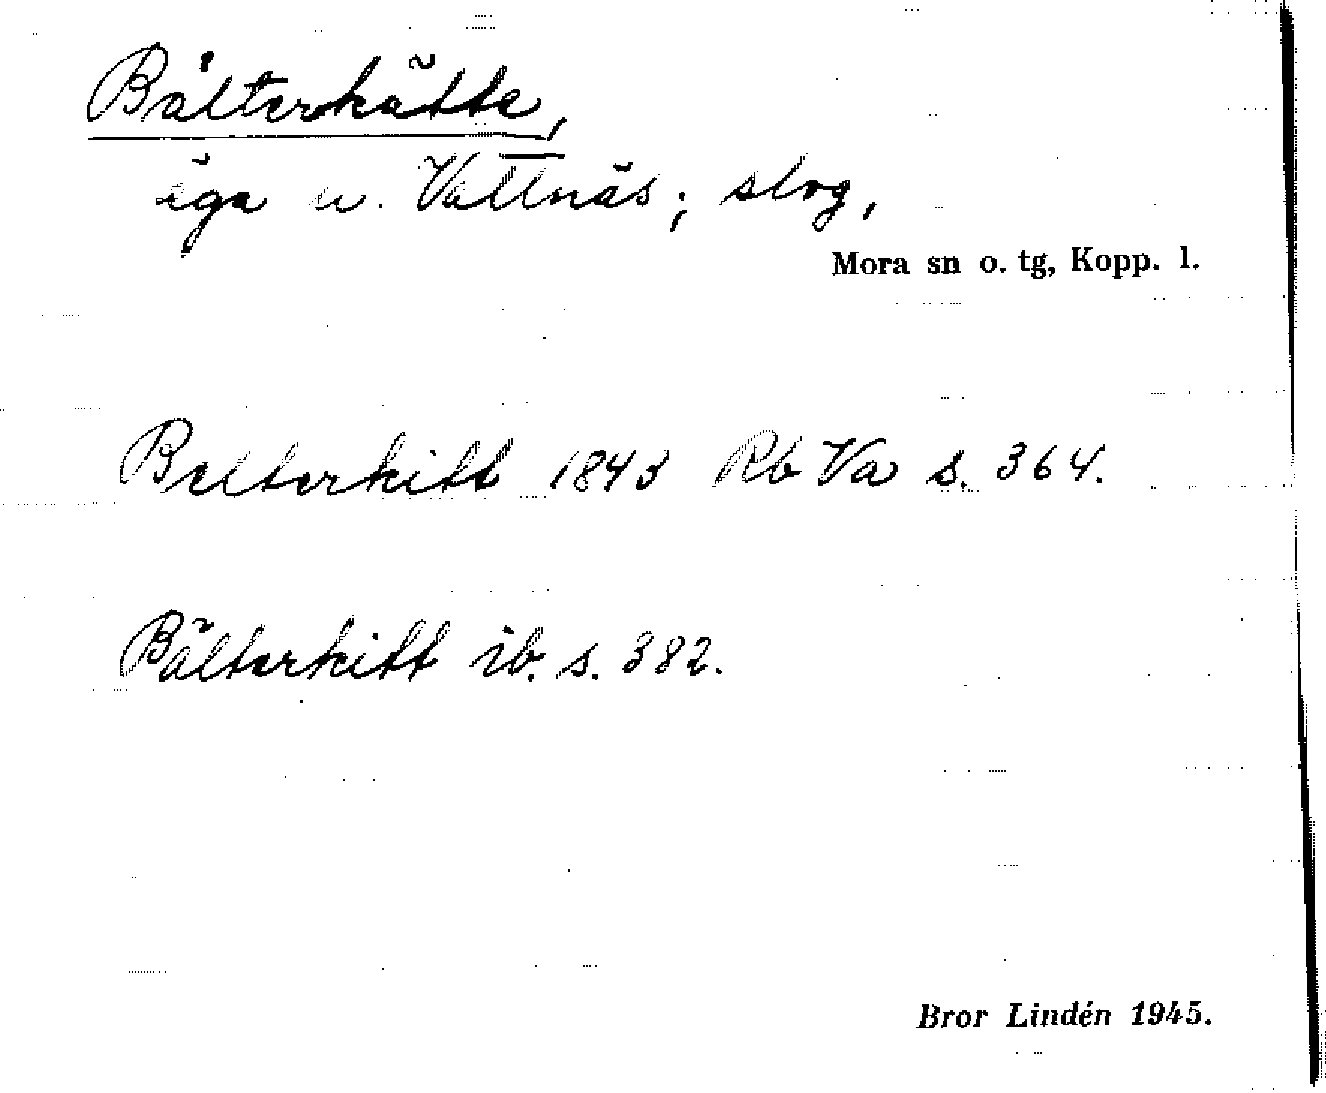 Bälterkätte,
äga u. Vattnäs; slog,
Mora sn o. tg, Kopp. l.
Belterkitt 1843 Rb Va s. 364.
Bälterkitt ib. s. 382.
Bror Lindén 1945.